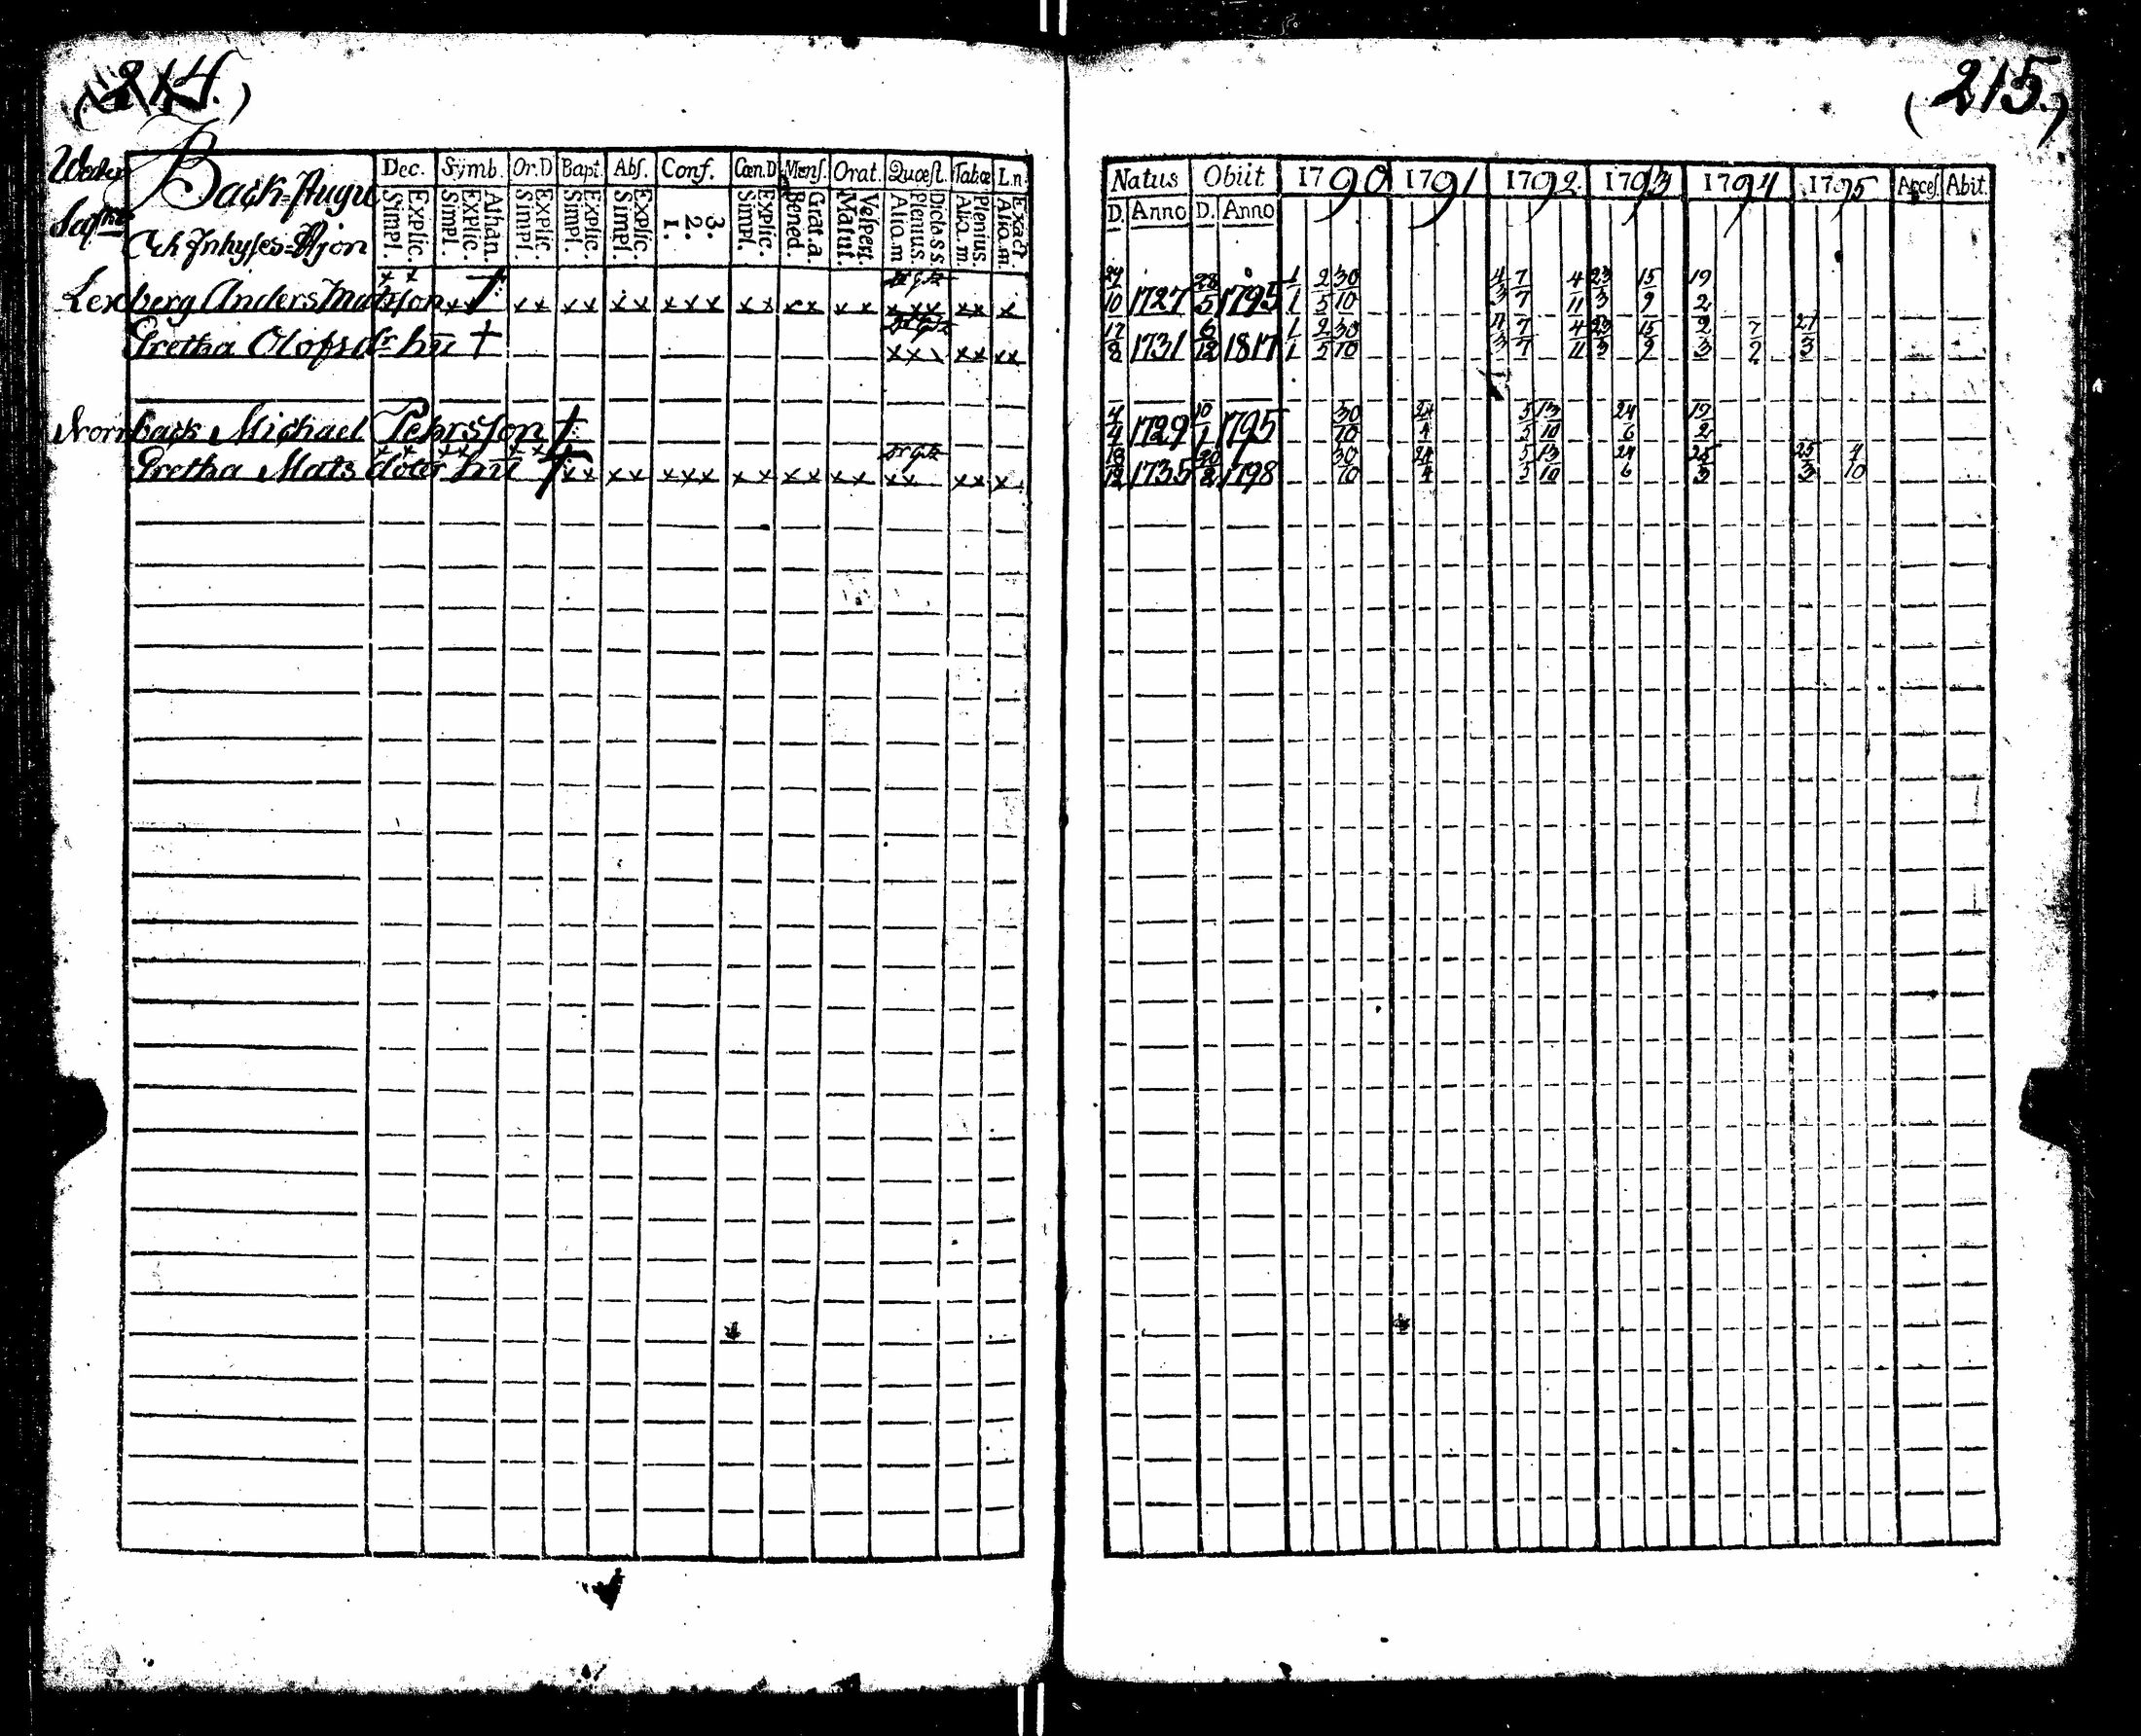 (214.)
Back-Stugu
Och Inhyses-Hjon
Dec. Symb. Or.D Bapt. Abs. Conf. Cœn.D Mens. Orat. Quæst. Tabœ L.n.
Simpl. Explic. Simpl. Explic. Athan. Simpl. Explic. Simpl. Explic. Simpl. Explic. 1. 2. 3. Simpl. Explic. Bened. Grat.a. Matut. Vespert. Alio.m. Plenius. Dicta.S.S. Alio.m. Plenius. Alio.m. Exact.
Lexberg Anders Matsson †
x x x x x x x x x x x x x x x x x x x x x x x x x x
Gretha Olofsdr hu †
x x x x x x x
Norrback Michael Pehrsson †
Gretha Mats doter hu †
x x x x x x x x x x x x x x x x x x x x x x x x
(215.)
Natus Obiit 1790 1791 1792 1793 1794 1795 Acces. Abit.
D. Anno D. Anno
27/10 1727 28/5 1795 1/1 2/5 30/10 4/3 7/7 4/11 23/3 15/9 19/2
17/8 1731 6/12 1817 1/1 2/5 30/10 4/3 7/7 4/11 23/3 15/9 2/3 7/9 21/3
4/4 1729 10/1 1795 30/10 24/4 5/5 13/10 24/6 19/2
13/12 1735 20/2 1798 30/10 24/4 5/5 13/10 24/6 25/3 25/3 4/10